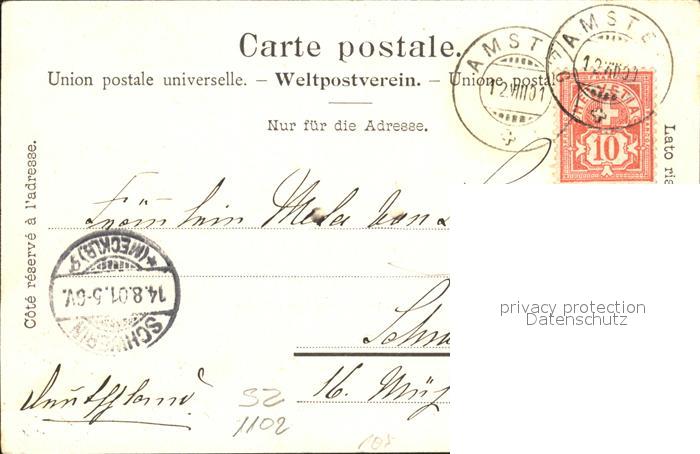 Carte postale.
Union postale universelle. – Weltpostverein. – Unione postal
Nur für die Adresse.
Côté réservé à l'adresse.
Lato ris
AMSTE
12.VIII01
STAMSTE
12.VIII01
HELVETIA
10
Fräulein Mela von
SCHWERIN
14.8.01.5-6V.
*(MECKLB)
Schw
16. Mü
Deutschland
SZ
1102
108
privacy protection
Datenschutz